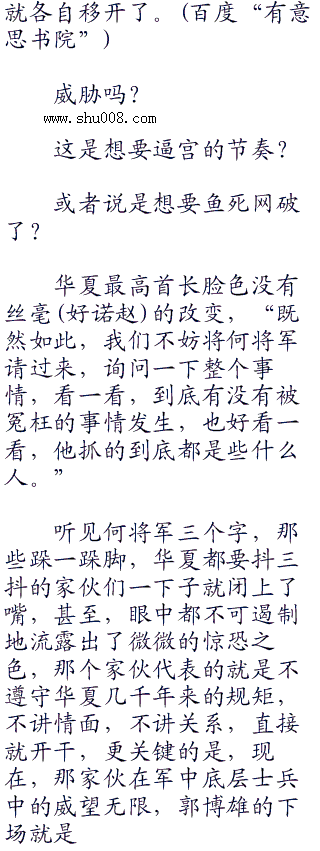 就各自移开了。(百度“有意
思书院”)
威胁吗？
www.shu008.com
这是想要逼宫的节奏？
或者说是想要鱼死网破
了？
华夏最高首长脸色没有
丝毫(好诺赵)的改变，“既
然如此，我们不妨将何将军
请过来，询问一下整个事
情，看一看，到底有没有被
冤枉的事情发生，也好看一
看，他抓的到底都是些什么
人。”
听见何将军三个字，那
些跺一跺脚，华夏都要抖三
抖的家伙们一下子就闭上了
嘴，甚至，眼中都不可遏制
地流露出了微微的惊恐之
色，那个家伙代表的就是不
遵守华夏几千年来的规矩，
不讲情面，不讲关系，直接
就开干，更关键的是，现
在，那家伙在军中底层士兵
中的威望无限，郭博雄的下
场就是